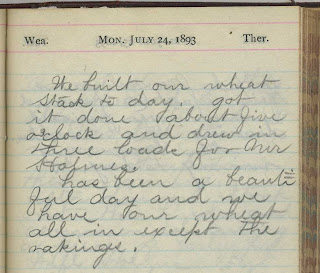 Wea. MON. JULY 24, 1893 Ther.
We built our wheat
stack to day. got
it done about five
oclock and drew in
three loads for Mr
has been a beauti=
ful day and we
have our wheat
all in except the
rakings.